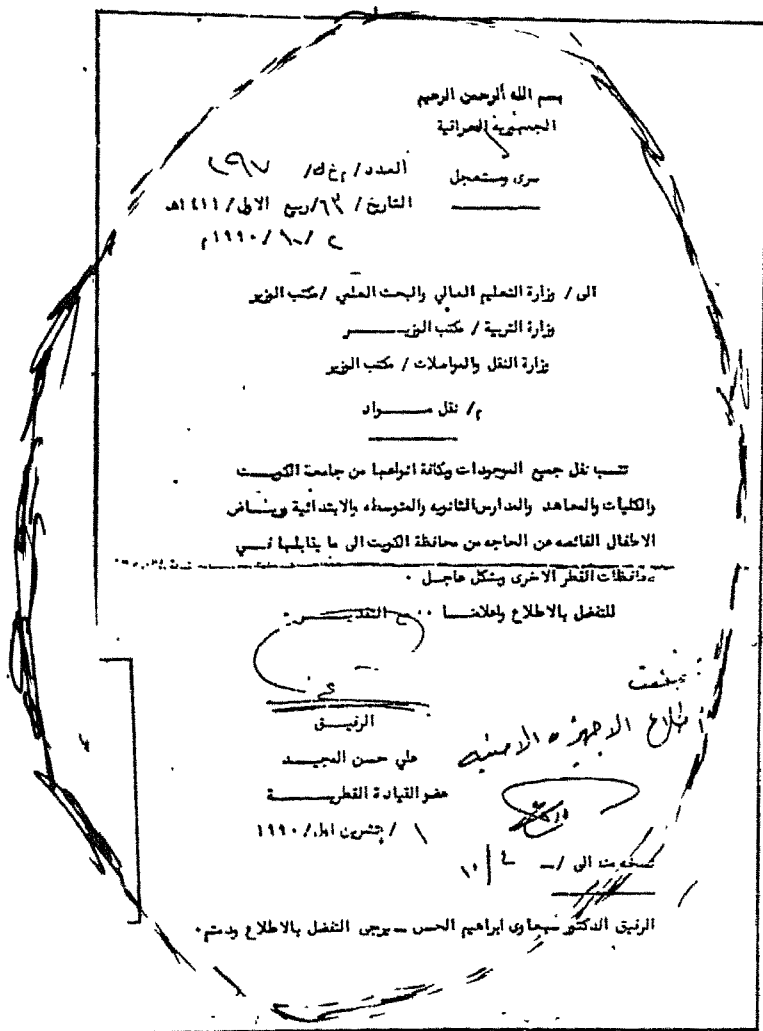 بسم الله الرحمن الرحيم
الجمهورية العراقية
سرى ومستعجل
العدد/ م خ ك/ ٢٩٧
التاريخ/ /ربيع الاول/١٤١١هـ
٢ /١٠/ ١٩٩٠م
الى / وزارة التعليم العالي والبحث العلمي /مكتب الوزير
وزارة التربية / مكتب الوزيـــــر
وزارة النقل والمواصلات / مكتب الوزير
م/ نقل مـــــواد
تنسب نقل جميع الموجودات وبكافة انواعها من جامعة الكويـــت
والكليات والمعاهد والمدارس الثانويه والمتوسطه والابتدائية وريـــاض
الاطفال الفائضه عن الحاجه من محافظة الكويت الى ما يقابلها فـــي
محافظات القطر الاخرى وبشكل عاجـل ٠
للتفضل بالاطلاع واعلامنـــا ٠٠ مع التقديـــــر٠
الرفيـــق
علي حسن المجيـــد
عضو القيادة القطريـــــة
١ / تشرين اول/ ١٩٩٠
اطلاع الاجهزه الامنيه
نسخه منه الى /ــ
١٠/٤
الرفيق الدكتور سبعاوى ابراهيم الحسن ــ يرجى التفضل بالاطلاع ودمتم٠